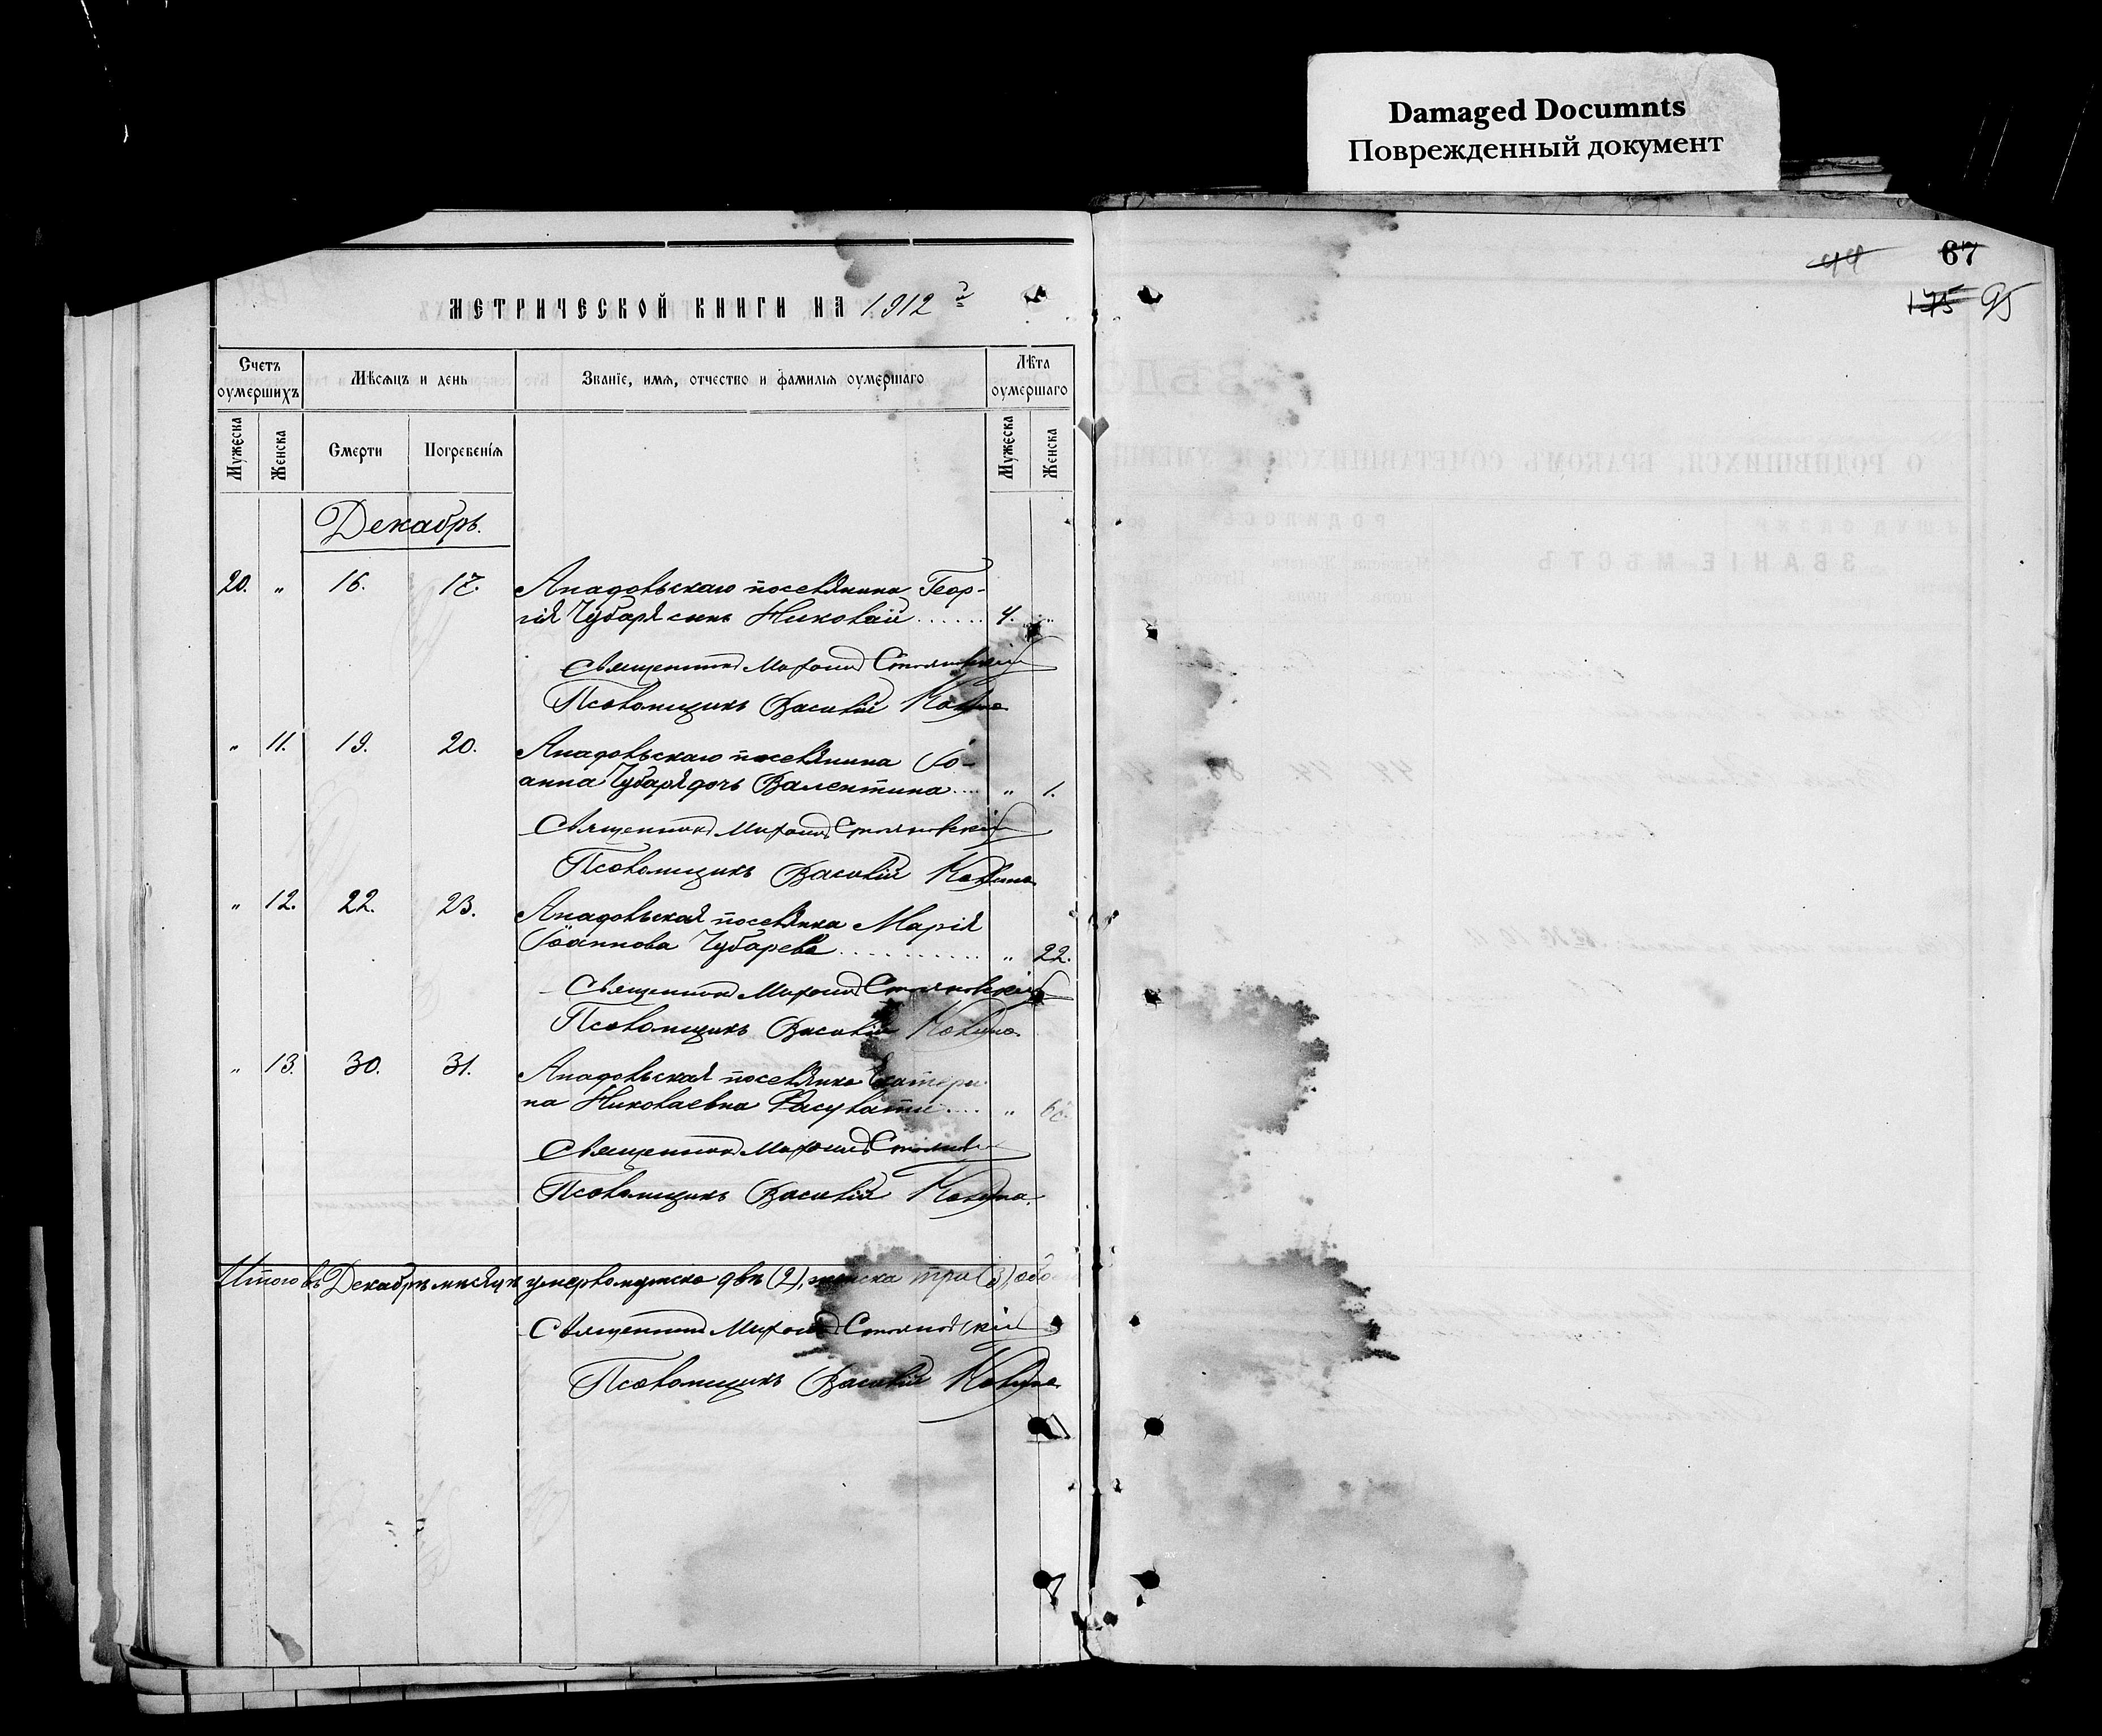 Damaged Documnts
Поврежденный документ
67
44
175 95
МЕТРИЧЕСКОЙ КНИГИ НА 1912 г.
Счетъ оумершихъ
Мѣсяцъ и день
Званїе, имя, отчество и фамилїя оумершаго
Лѣта оумершаго
Мужеска
Женска
Смерти
Погребенїя
Мужеска
Женска
Декабрь.
20. " 16. 17. Анадольскаго поселянина Геор-
гія Чубаря сынъ Николай ...... 4. "
Священникъ Михаилъ Стояновскій
Псаломщикъ Василій
" 11. 19. 20. Анадольскаго поселянина Іо-
анна Чубаря дочь Валентина .... " 1.
Священникъ Михаилъ Стояновскій
Псаломщикъ Василій
" 12. 22. 23. Анадольская поселянка Марія
Іоаннова Чубарева ........... " 22.
Священникъ Михаилъ Стояновскій
Псаломщикъ Василій
" 13. 30. 31. Анадольская поселянка Екатери-
на Николаевна .... "
Священникъ Михаилъ Стояновскій
Псаломщикъ Василій
Итого въ Декабрѣ мѣсяцѣ умерло мужска два (2), женска три (3),
Священникъ Михаилъ Стояновскій
Псаломщикъ Василій